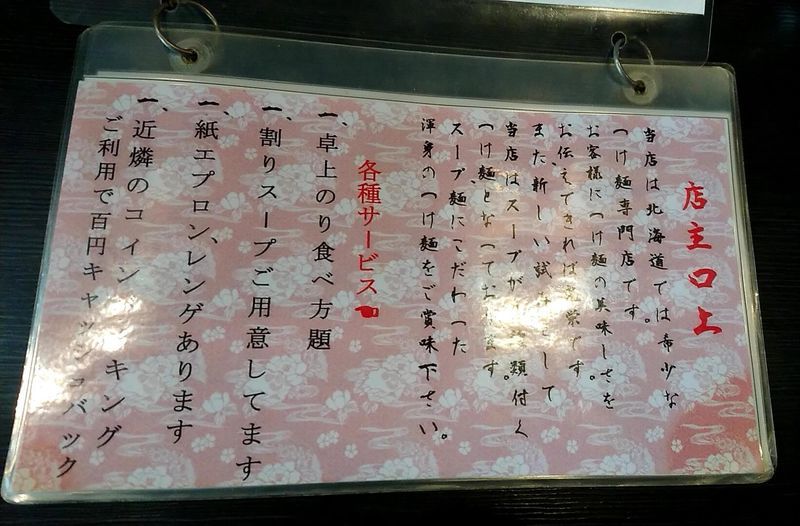 店主口上
当店は北海道では希少な
つけ麺専門店です。
お客様につけ麺の美味しさを
お伝えできれば光栄です。
また、新しい試みとして
当店はスープが 類付く
つけ麺となっております。
スープ、麺にこだわった
渾身のつけ麺をご賞味下さい。
各種サービス
一、卓上のり食べ方題
一、割りスープご用意してます
一、紙エプロン、レンゲあります
一、近燐のコイン キング
ご利用で百円キャッシュバック